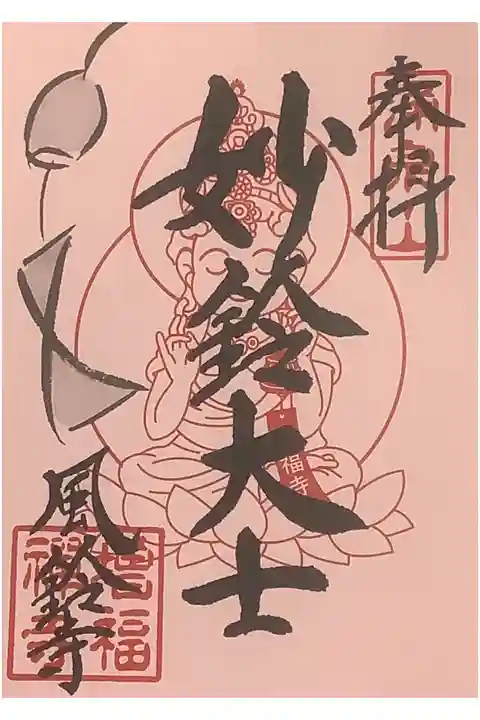 奉拝
妙鈴大士
福寺
風鈴寺
増福禅寺